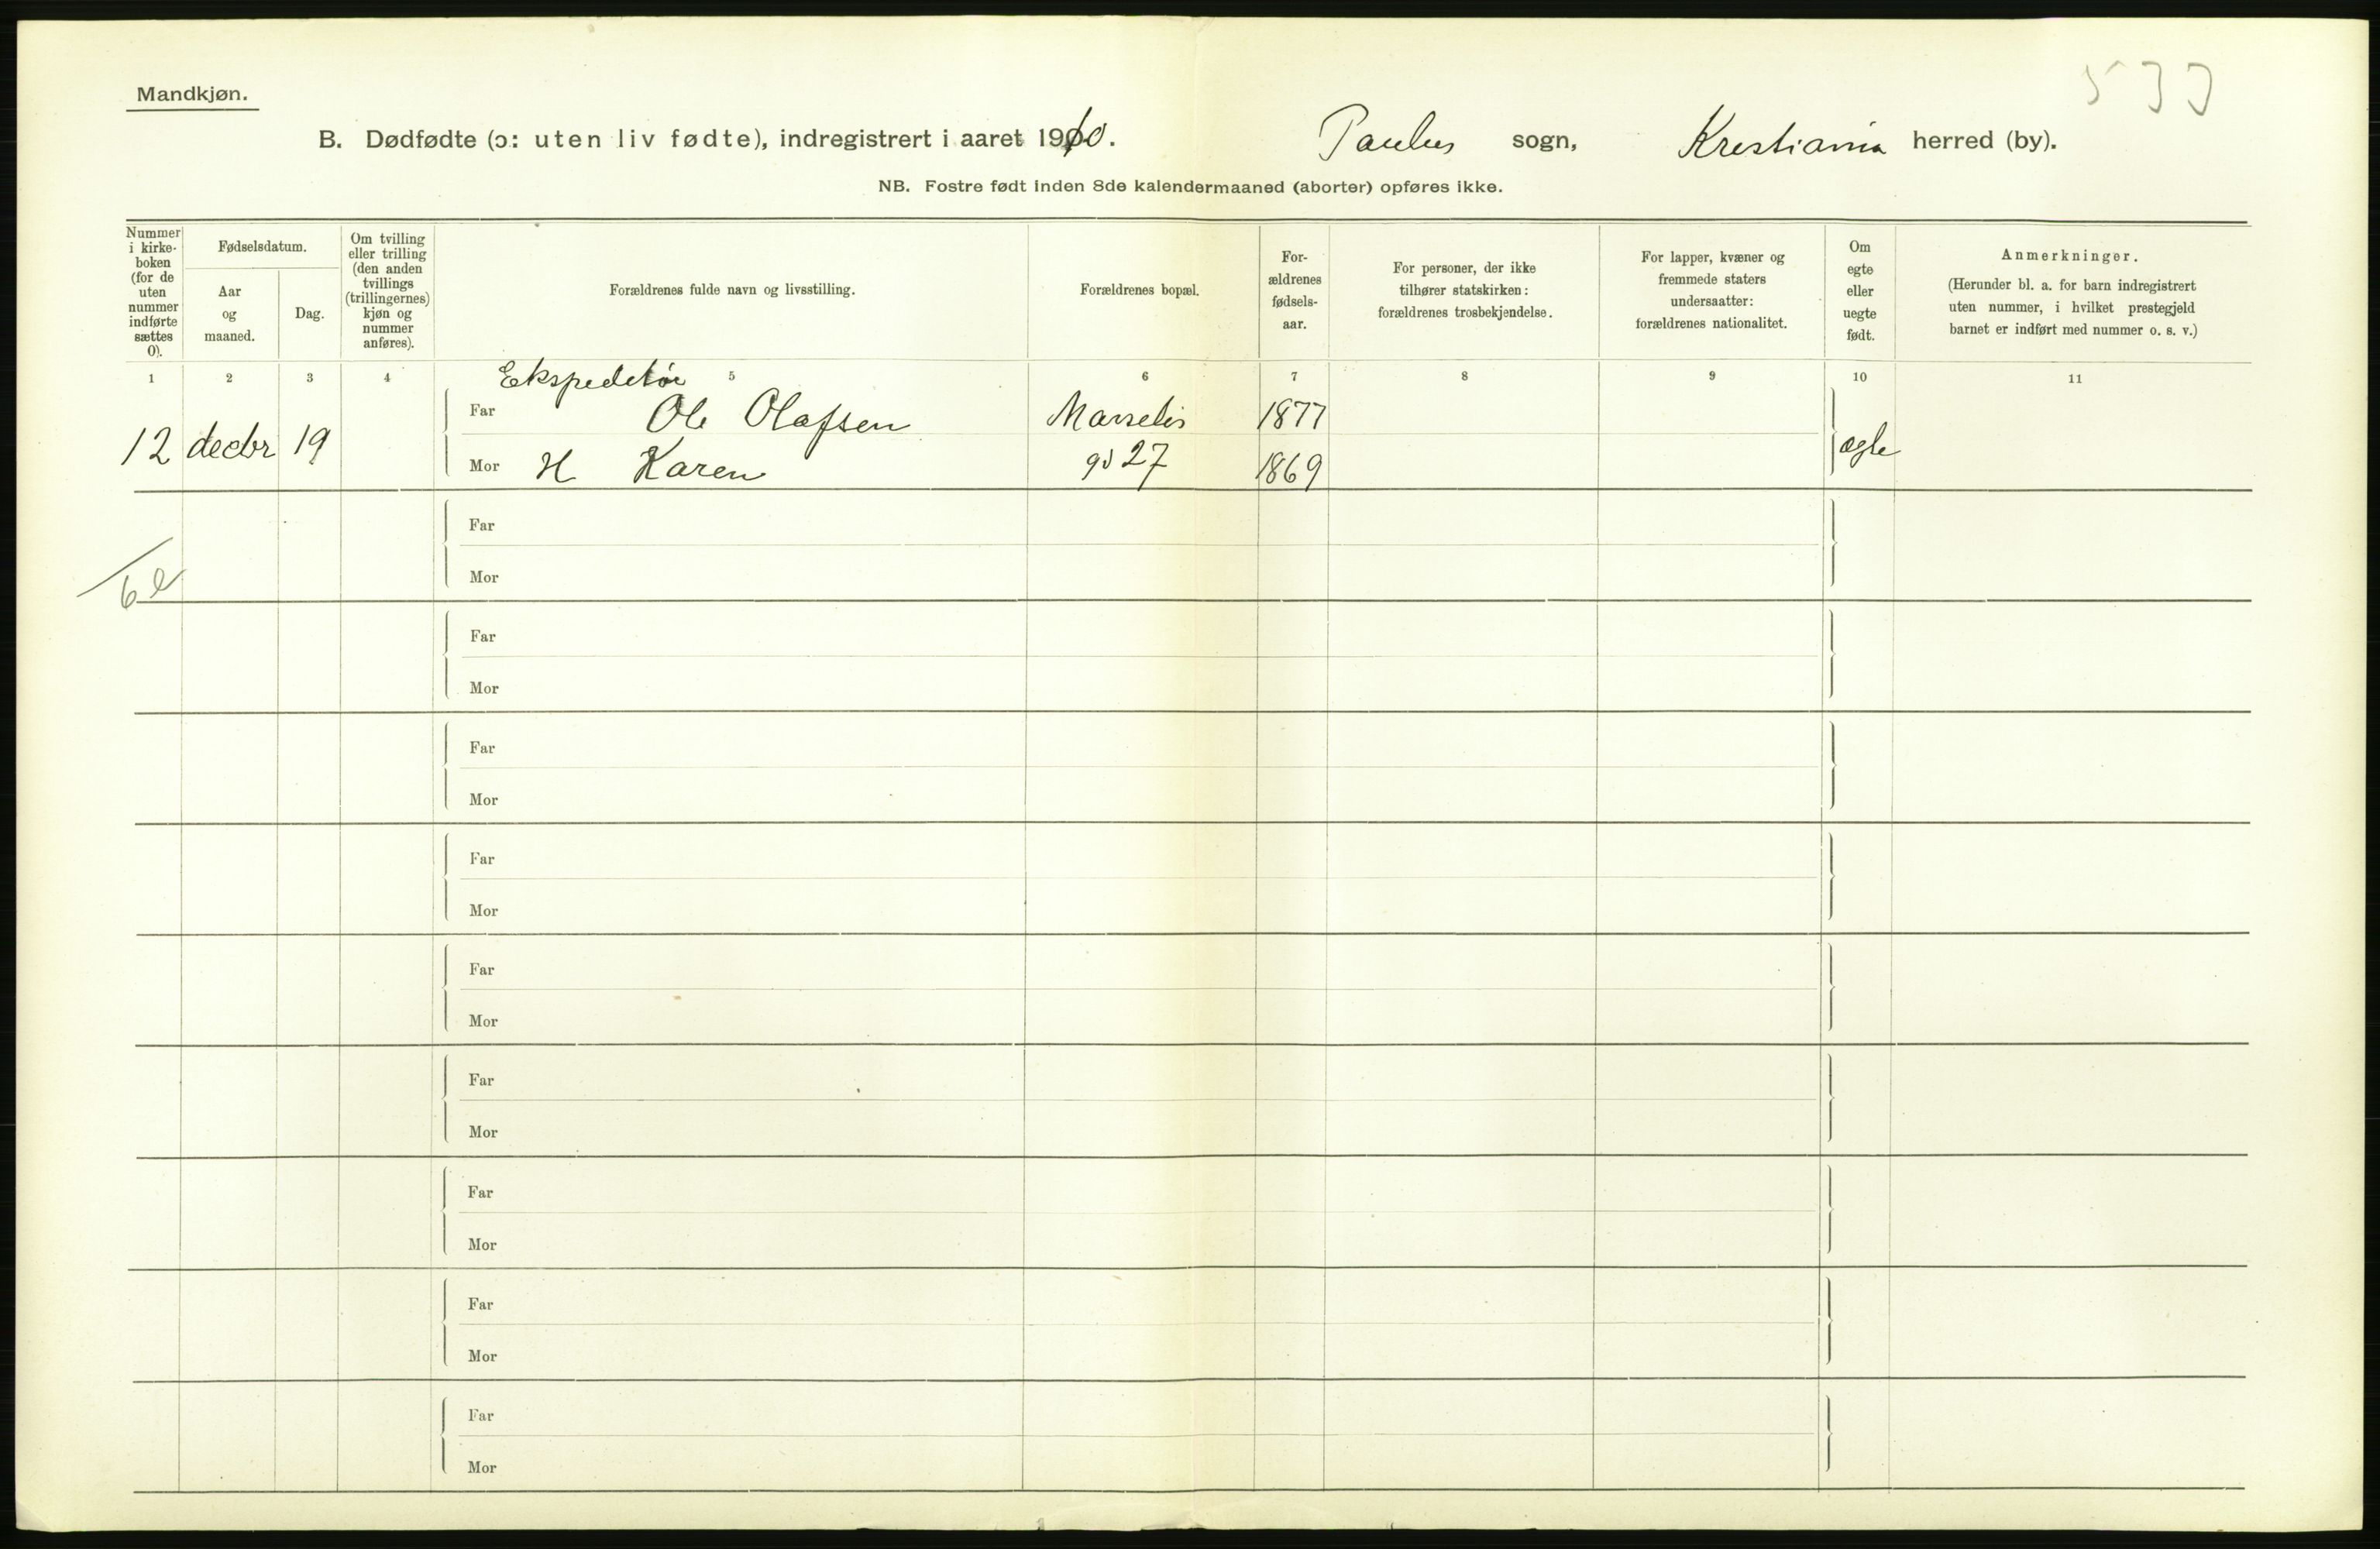 533
Mandkjøn.
B. Dødfødte (ɔ: uten liv fødte), indregistrert i aaret 1910. Paulus sogn, Krestiania herred (by).
NB. Fostre født inden 8de kalendermaaned (aborter) opføres ikke.
Nummer i kirke-boken (for de uten nummer indførte sættes 0).
Fødselsdatum.
Aar og maaned.
Dag.
Om tvilling eller trilling (den anden tvillings (trillingernes) kjøn og nummer anføres).
Forældrenes fulde navn og livsstilling.
Forældrenes bopæl.
For-ældrenes fødsels-aar.
For personer, der ikke tilhører statskirken: forældrenes trosbekjendelse.
For lapper, kvæner og fremmede staters undersaatter: forældrenes nationalitet.
Om egte eller uegte født.
Anmerkninger.
(Herunder bl. a. for barn indregistrert uten nummer, i hvilket prestegjeld barnet er indført med nummer o. s. v.)
1 2 3 4 5 6 7 8 9 10 11
Ekspeditør
Far Ole Olafsen Marselis 1877
12 decbr 19 ægte
Mor H Karen gd 27 1869
Far
Mor
Far
Mor
Far
Mor
Far
Mor
Far
Mor
Far
Mor
Far
Mor
Far
Mor
Far
Mor